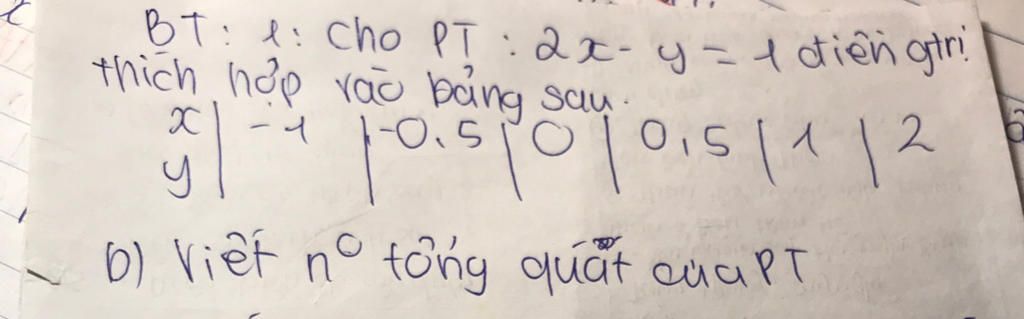 BT: 1: Cho PT : 2x - y = 1 điền gtrị
thích hợp vào bảng sau.
x | -1 | -0.5 | 0 | 0,5 | 1 | 2
y
b) Viết n° tổng quát của PT